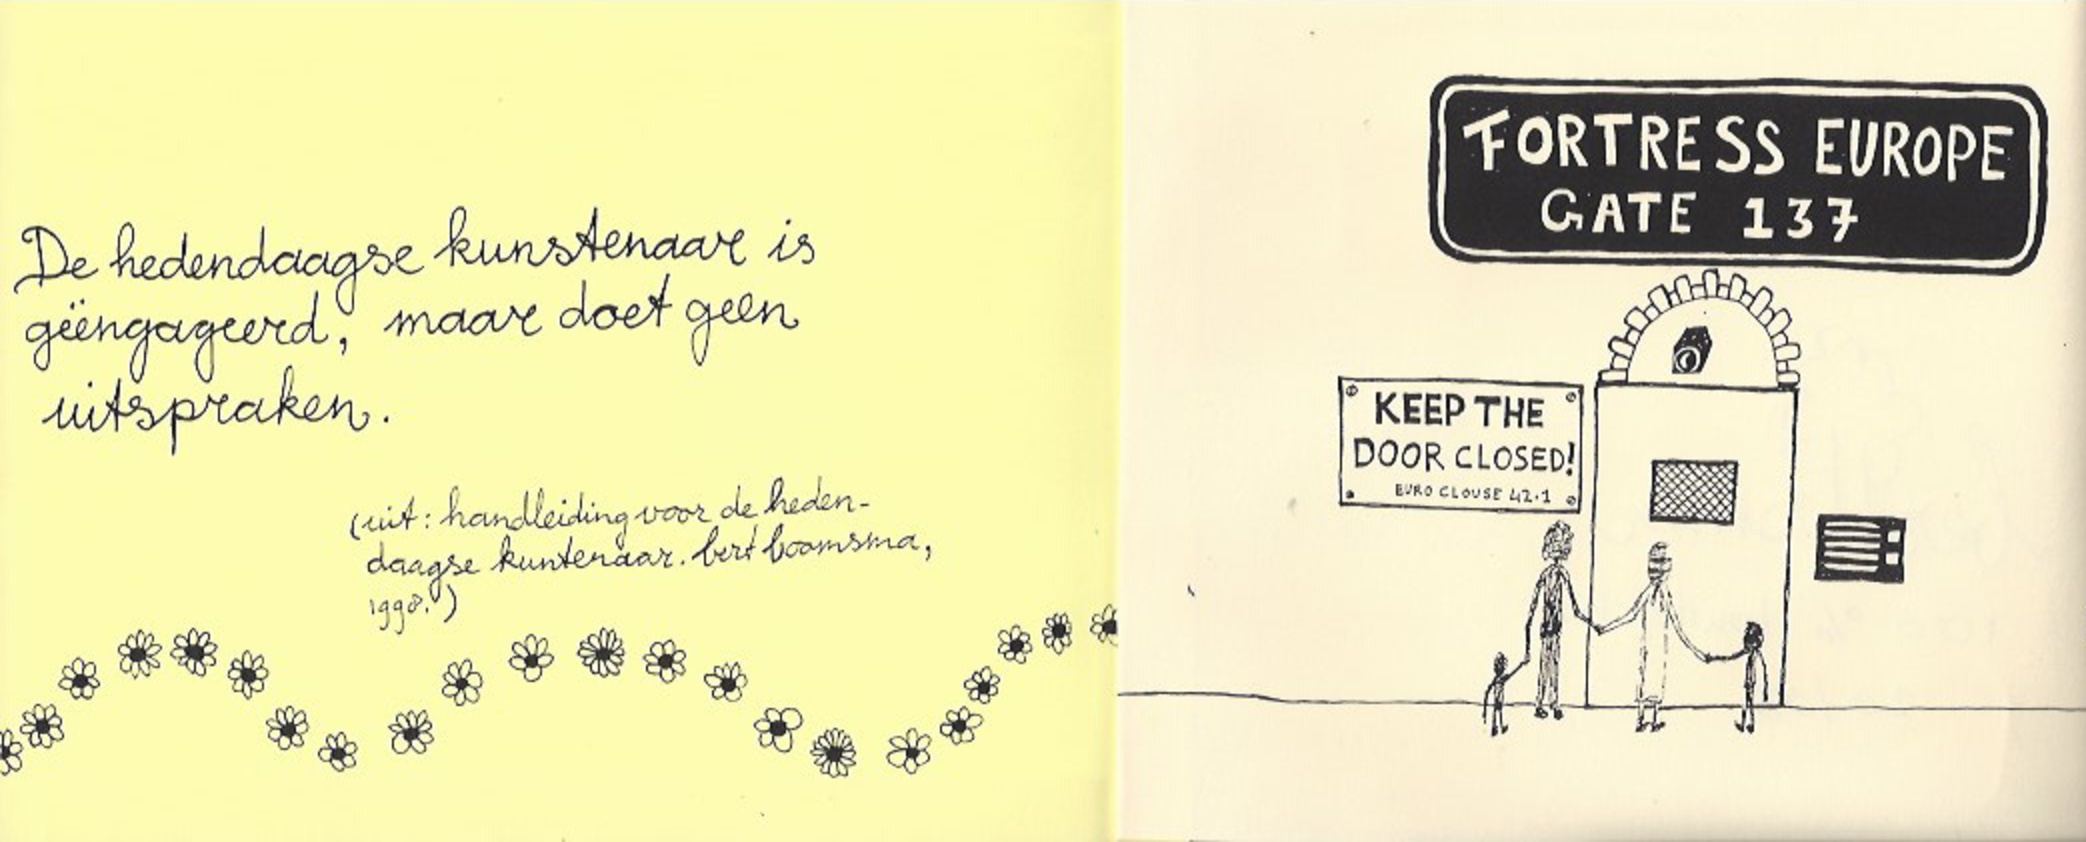 De hedendaagse kunstenaar is
geëngageerd, maar doet geen
uitspraken.
(uit: handleiding voor de heden-
daagse kuntenaar. bert boomsma,
1998.)
FORTRESS EUROPE
GATE 137
KEEP THE
DOOR CLOSED!
EURO CLOUSE 42.1